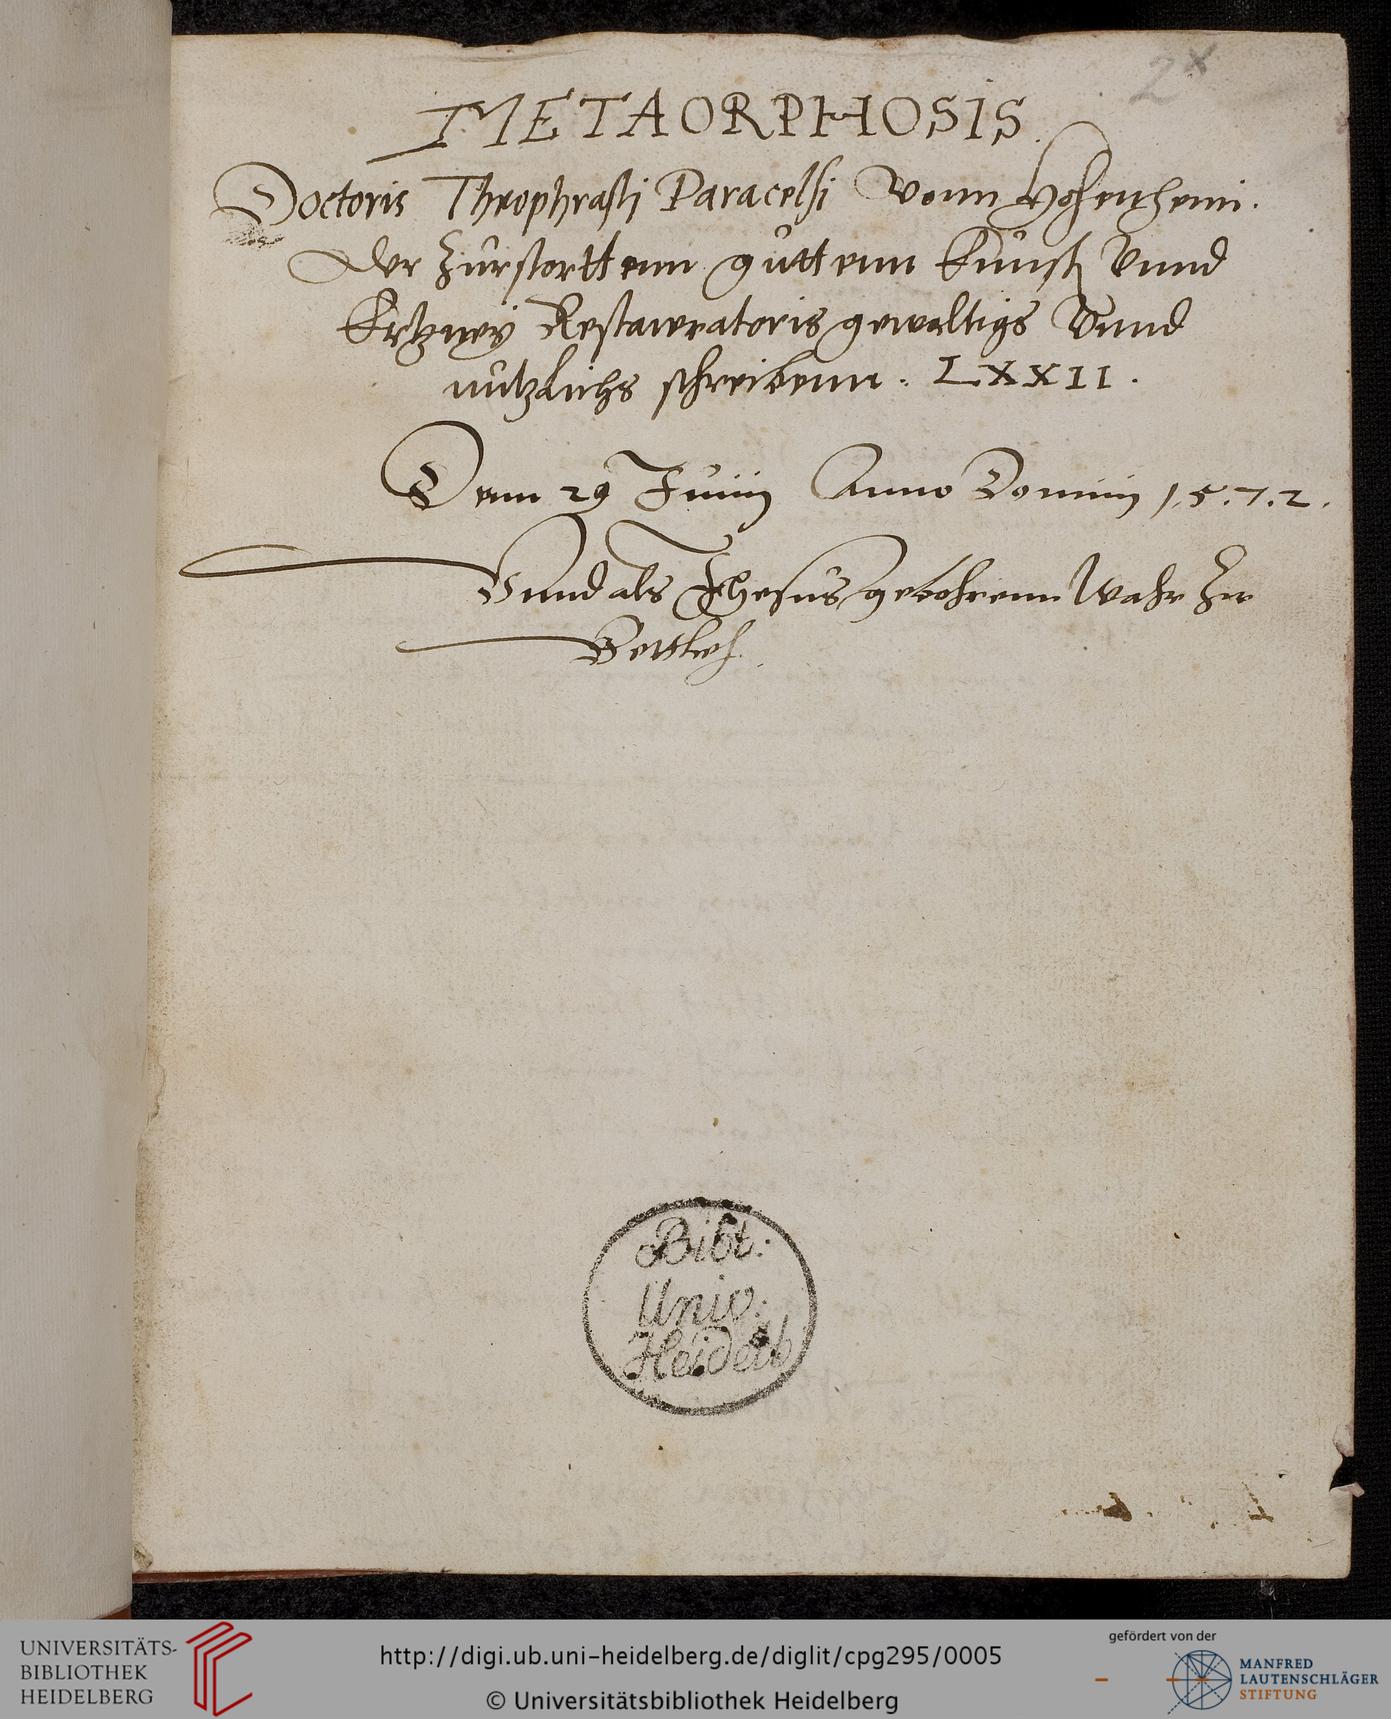 2x
METAORPHOSIS.
Doctoris Theophrasti Paracelsi vonn Hohenheim.
der zurstorttenn guttenn Kunst Vnnd
Ertzney Restaweratoris gewaltigs Vnnd
nutzlichs schreibenn. LXXII.
Denn 29 Junij Anno Dominj 1.5.7.2.
Vnnd als Jhesus gebohrenn Wahr zu
Bettleh.
Bibl:
Univ:
Heidelb
UNIVERSITÄTS-
BIBLIOTHEK
HEIDELBERG
http://digi.ub.uni-heidelberg.de/diglit/cpg295/0005
© Universitätsbibliothek Heidelberg
gefördert von der
MANFRED
LAUTENSCHLÄGER
STIFTUNG